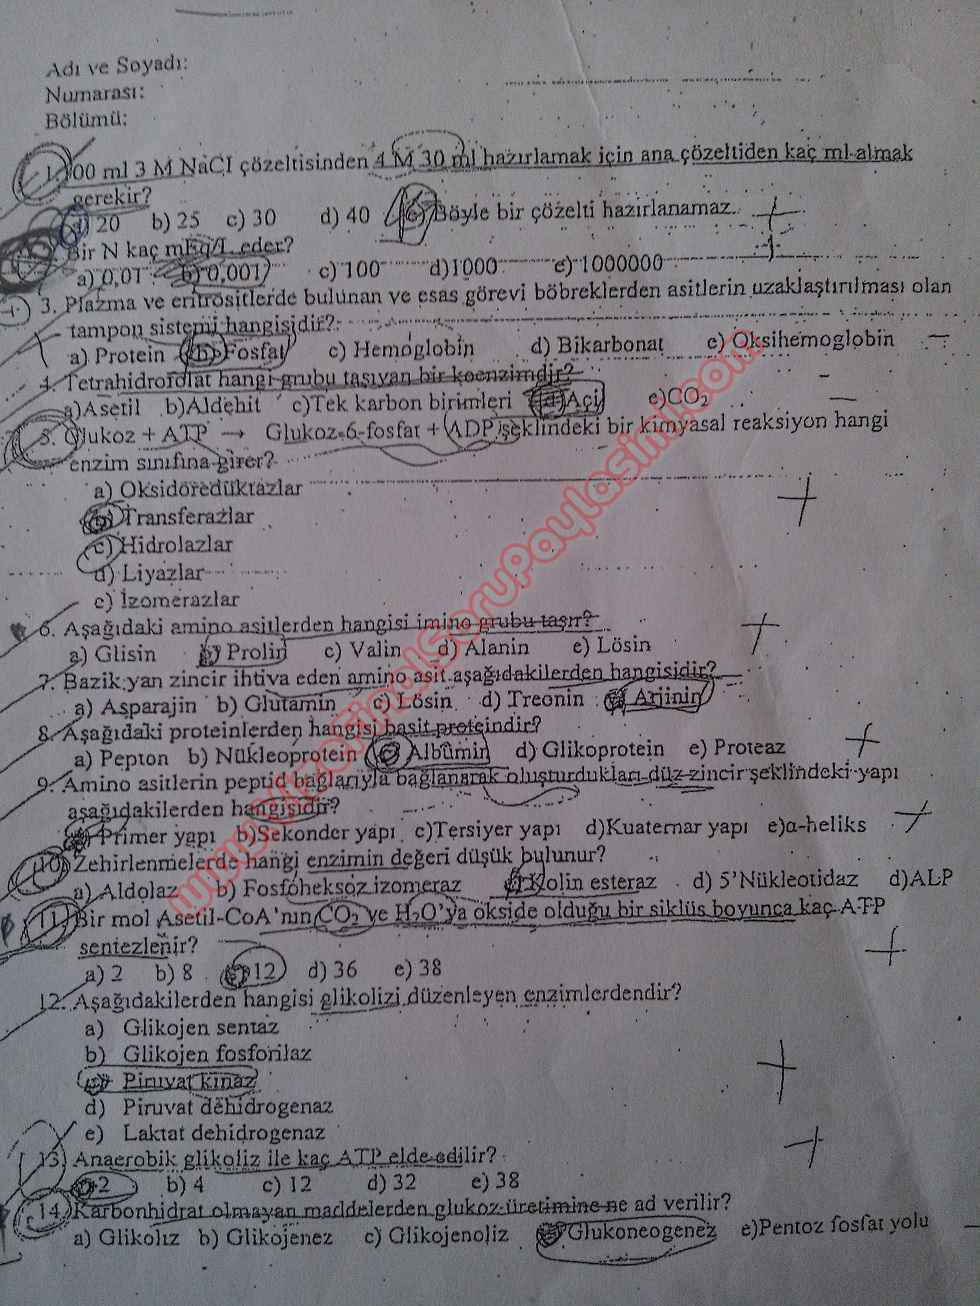 Adı ve Soyadı:
Numarası:
Bölümü:
1. 100 ml 3 M NaCl çözeltisinden 4 M 30 ml hazırlamak için ana çözeltiden kaç ml almak
gerekir?
a) 20 b) 25 c) 30 d) 40 e) Böyle bir çözelti hazırlanamaz.
Bir N kaç mEq/L eder?
a) 0,01 b) 0,001 c) 100 d)1000 e) 1000000
3. Plazma ve eritrositlerde bulunan ve esas görevi böbreklerden asitlerin uzaklaştırılması olan
tampon sistemi hangisidir?
a) Protein b) Fosfat c) Hemoglobin d) Bikarbonat e) Oksihemoglobin
4. Tetrahidrofolat hangi grubu taşıyan bir koenzimdir?
a)Asetil b)Aldehit c)Tek karbon birimleri d)Açil e)CO₂
5. Glukoz + ATP → Glukoz-6-fosfat + ADP şeklindeki bir kimyasal reaksiyon hangi
enzim sınıfına girer?
a) Oksidoredüktazlar
b) Transferazlar
c) Hidrolazlar
d) Liyazlar
e) İzomerazlar
6. Aşağıdaki amino asitlerden hangisi imino grubu taşır?
a) Glisin b) Prolin c) Valin d) Alanin e) Lösin
7. Bazik yan zincir ihtiva eden amino asit aşağıdakilerden hangisidir?
a) Asparajin b) Glutamin c) Lösin d) Treonin e) Arjinin
8. Aşağıdaki proteinlerden hangisi basit proteindir?
a) Pepton b) Nükleoprotein c) Albümin d) Glikoprotein e) Proteaz
9. Amino asitlerin peptid bağlarıyla bağlanarak oluşturdukları düz zincir şeklindeki yapı
aşağıdakilerden hangisidir?
a) Primer yapı b)Sekonder yapı c)Tersiyer yapı d)Kuaternar yapı e)α-heliks
10. Zehirlenmelerde hangi enzimin değeri düşük bulunur?
a) Aldolaz b) Fosfoheksoz izomeraz c) Kolin esteraz d) 5'Nükleotidaz d)ALP
11. Bir mol Asetil-CoA'nın CO₂ ve H₂O'ya okside olduğu bir siklüs boyunca kaç ATP
sentezlenir?
a) 2 b) 8 c) 12 d) 36 e) 38
12. Aşağıdakilerden hangisi glikolizi düzenleyen enzimlerdendir?
a) Glikojen sentaz
b) Glikojen fosforilaz
c) Piruvat kinaz
d) Piruvat dehidrogenaz
e) Laktat dehidrogenaz
13. Anaerobik glikoliz ile kaç ATP elde edilir?
a) 2 b) 4 c) 12 d) 32 e) 38
14. Karbonhidrat olmayan maddelerden glukoz üretimine ne ad verilir?
a) Glikoliz b) Glikojenez c) Glikojenoliz d) Glukoneogenez e)Pentoz fosfat yolu